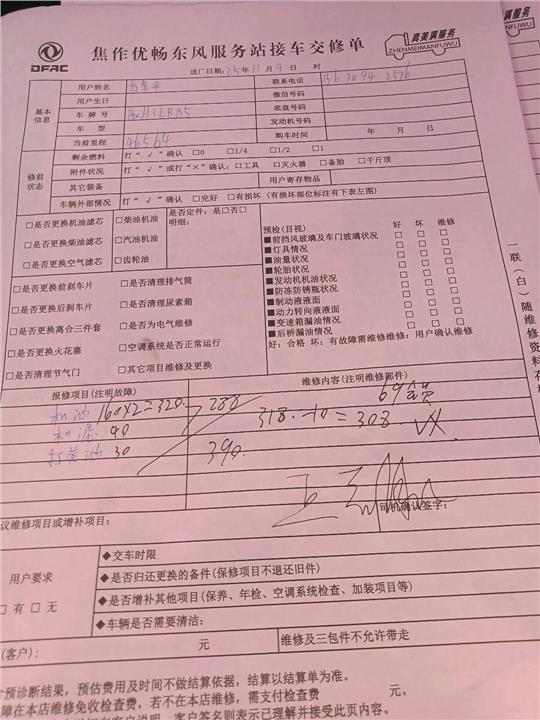 DFAC
焦作优畅东风服务站接车交修单
真美满服务
ZHENMEIMANFUWU
进厂日期: 25年11月9日 时
基本信息
用户姓名
联系电话
用户生日
微信号码
车牌号
底盘号码
车型
发动机号码
当前里程 46564
购车时间 年 月 日
修前状态
剩余燃料 打“√”确认 □0 □1/4 □1/2 □1
附件状况 打“√”或打“×”确认:□工具 □灭火器 □备胎 □千斤顶
其它装备
用户寄存物品
车辆外部情况 打“√”确认 □完好 □有损坏(有损坏部位标注有下表左图)
□是否更换机油滤芯 □柴油机油 是否定件:是□否□
□是否更换柴油滤芯 □汽油机油 明细:
□是否更换空气滤芯 □齿轮油
□是否更换前刹车片 □是否清理排气筒
□是否更换后刹车片 □是否清理尿素箱
□是否更换离合三件套 □是否为电气维修
□是否更换火花塞 □空调系统是否正常运行
□是否清理节气门 □其它项目维修及更换
预检(目视) 好 坏 维修
■前挡风玻璃及车门玻璃状况 □ □ □
■灯具情况 □ □ □
■油量状况 □ □ □
■轮胎状况 □ □ □
■发动机机油状况 □ □ □
■防冻防锈瓶状况 □ □ □
■制动液液面 □ □ □
■动力转向液液面 □ □ □
■变速箱漏油情况 □ □ □
■后桥漏油情况 □ □ □
好:合格 坏:有故障需维修维修:用户确认维修
一联(白)随维修资料存
报修项目(注明故障)
维修内容(注明维修部件)
机油 160×2=320 288
机滤 40 318-10=308
打黄油 30 390
司机确认签字:
议维修项目或增补项目:
用户要求
□有□无
◆交车时限
◆是否归还更换的备件(保修项目不退还旧件)
◆是否增补其他项目(保养、年检、空调系统检查、加装项目等)
◆车辆是否需要清洁:
(客户): 元 维修及三包件不允许带走
预诊断结果,预估费用及时间不做结算依据,结算以结算单为准。
障在本店维修免收检查费,若不在本店维修,需支付检查费 元。
客户签名则表示已理解并接受此页内容。